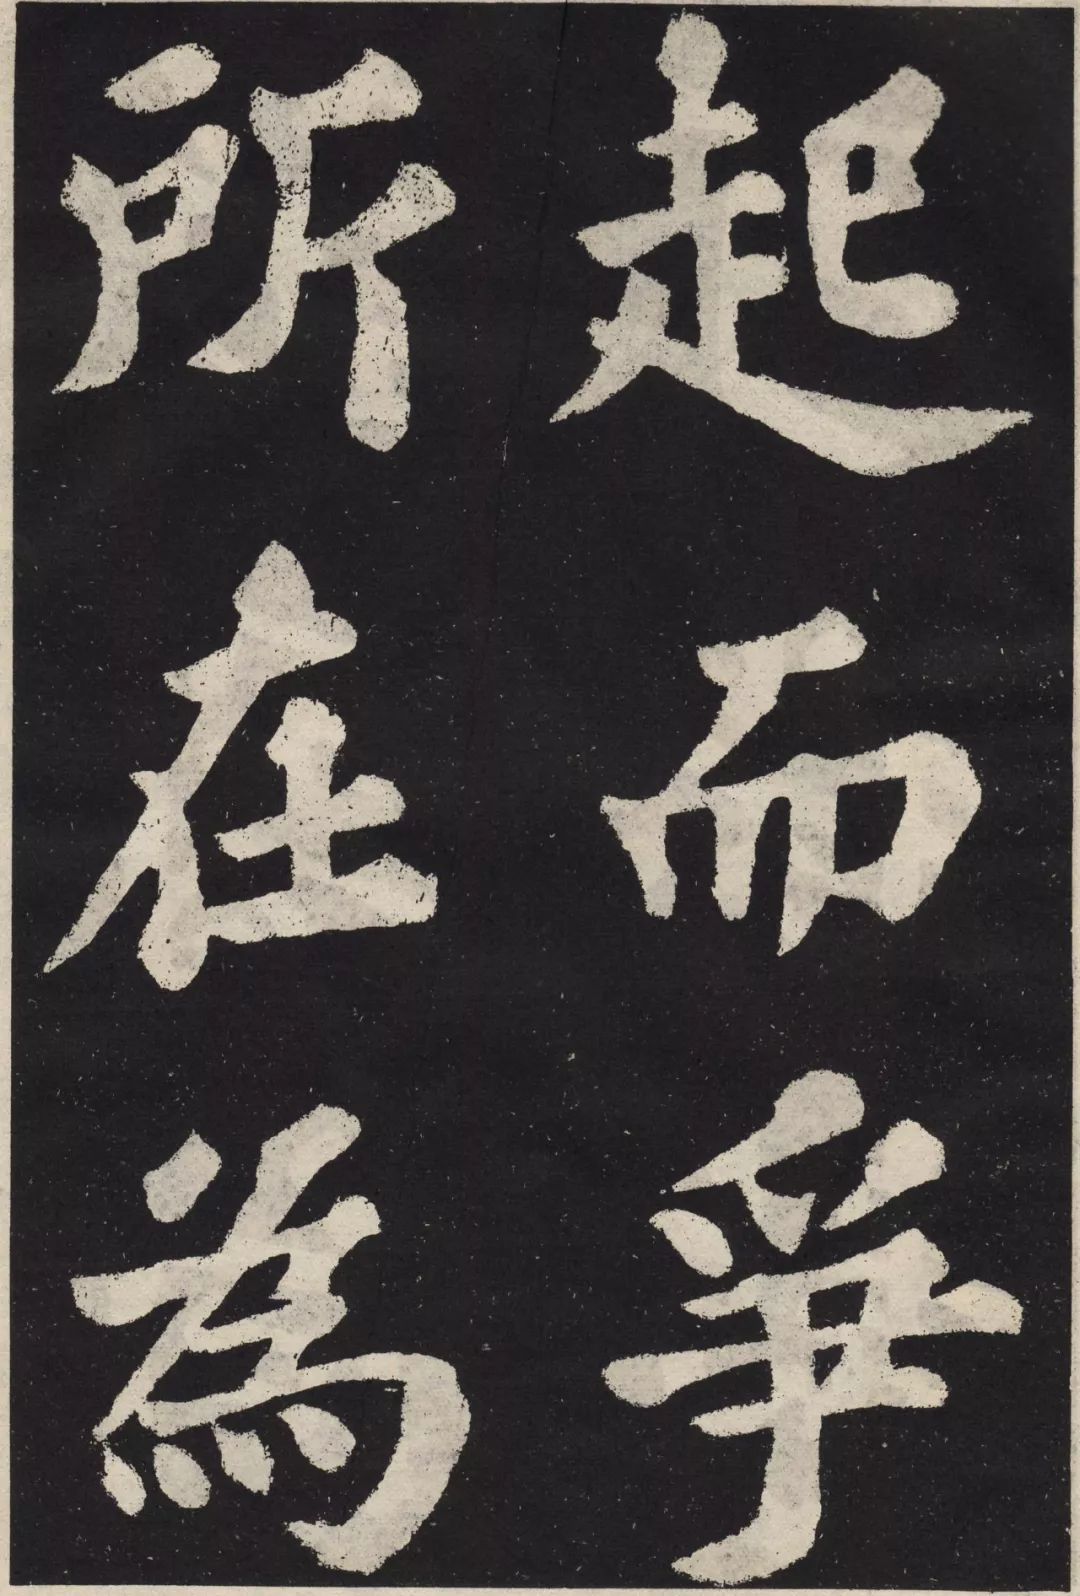 起而爭
所在為